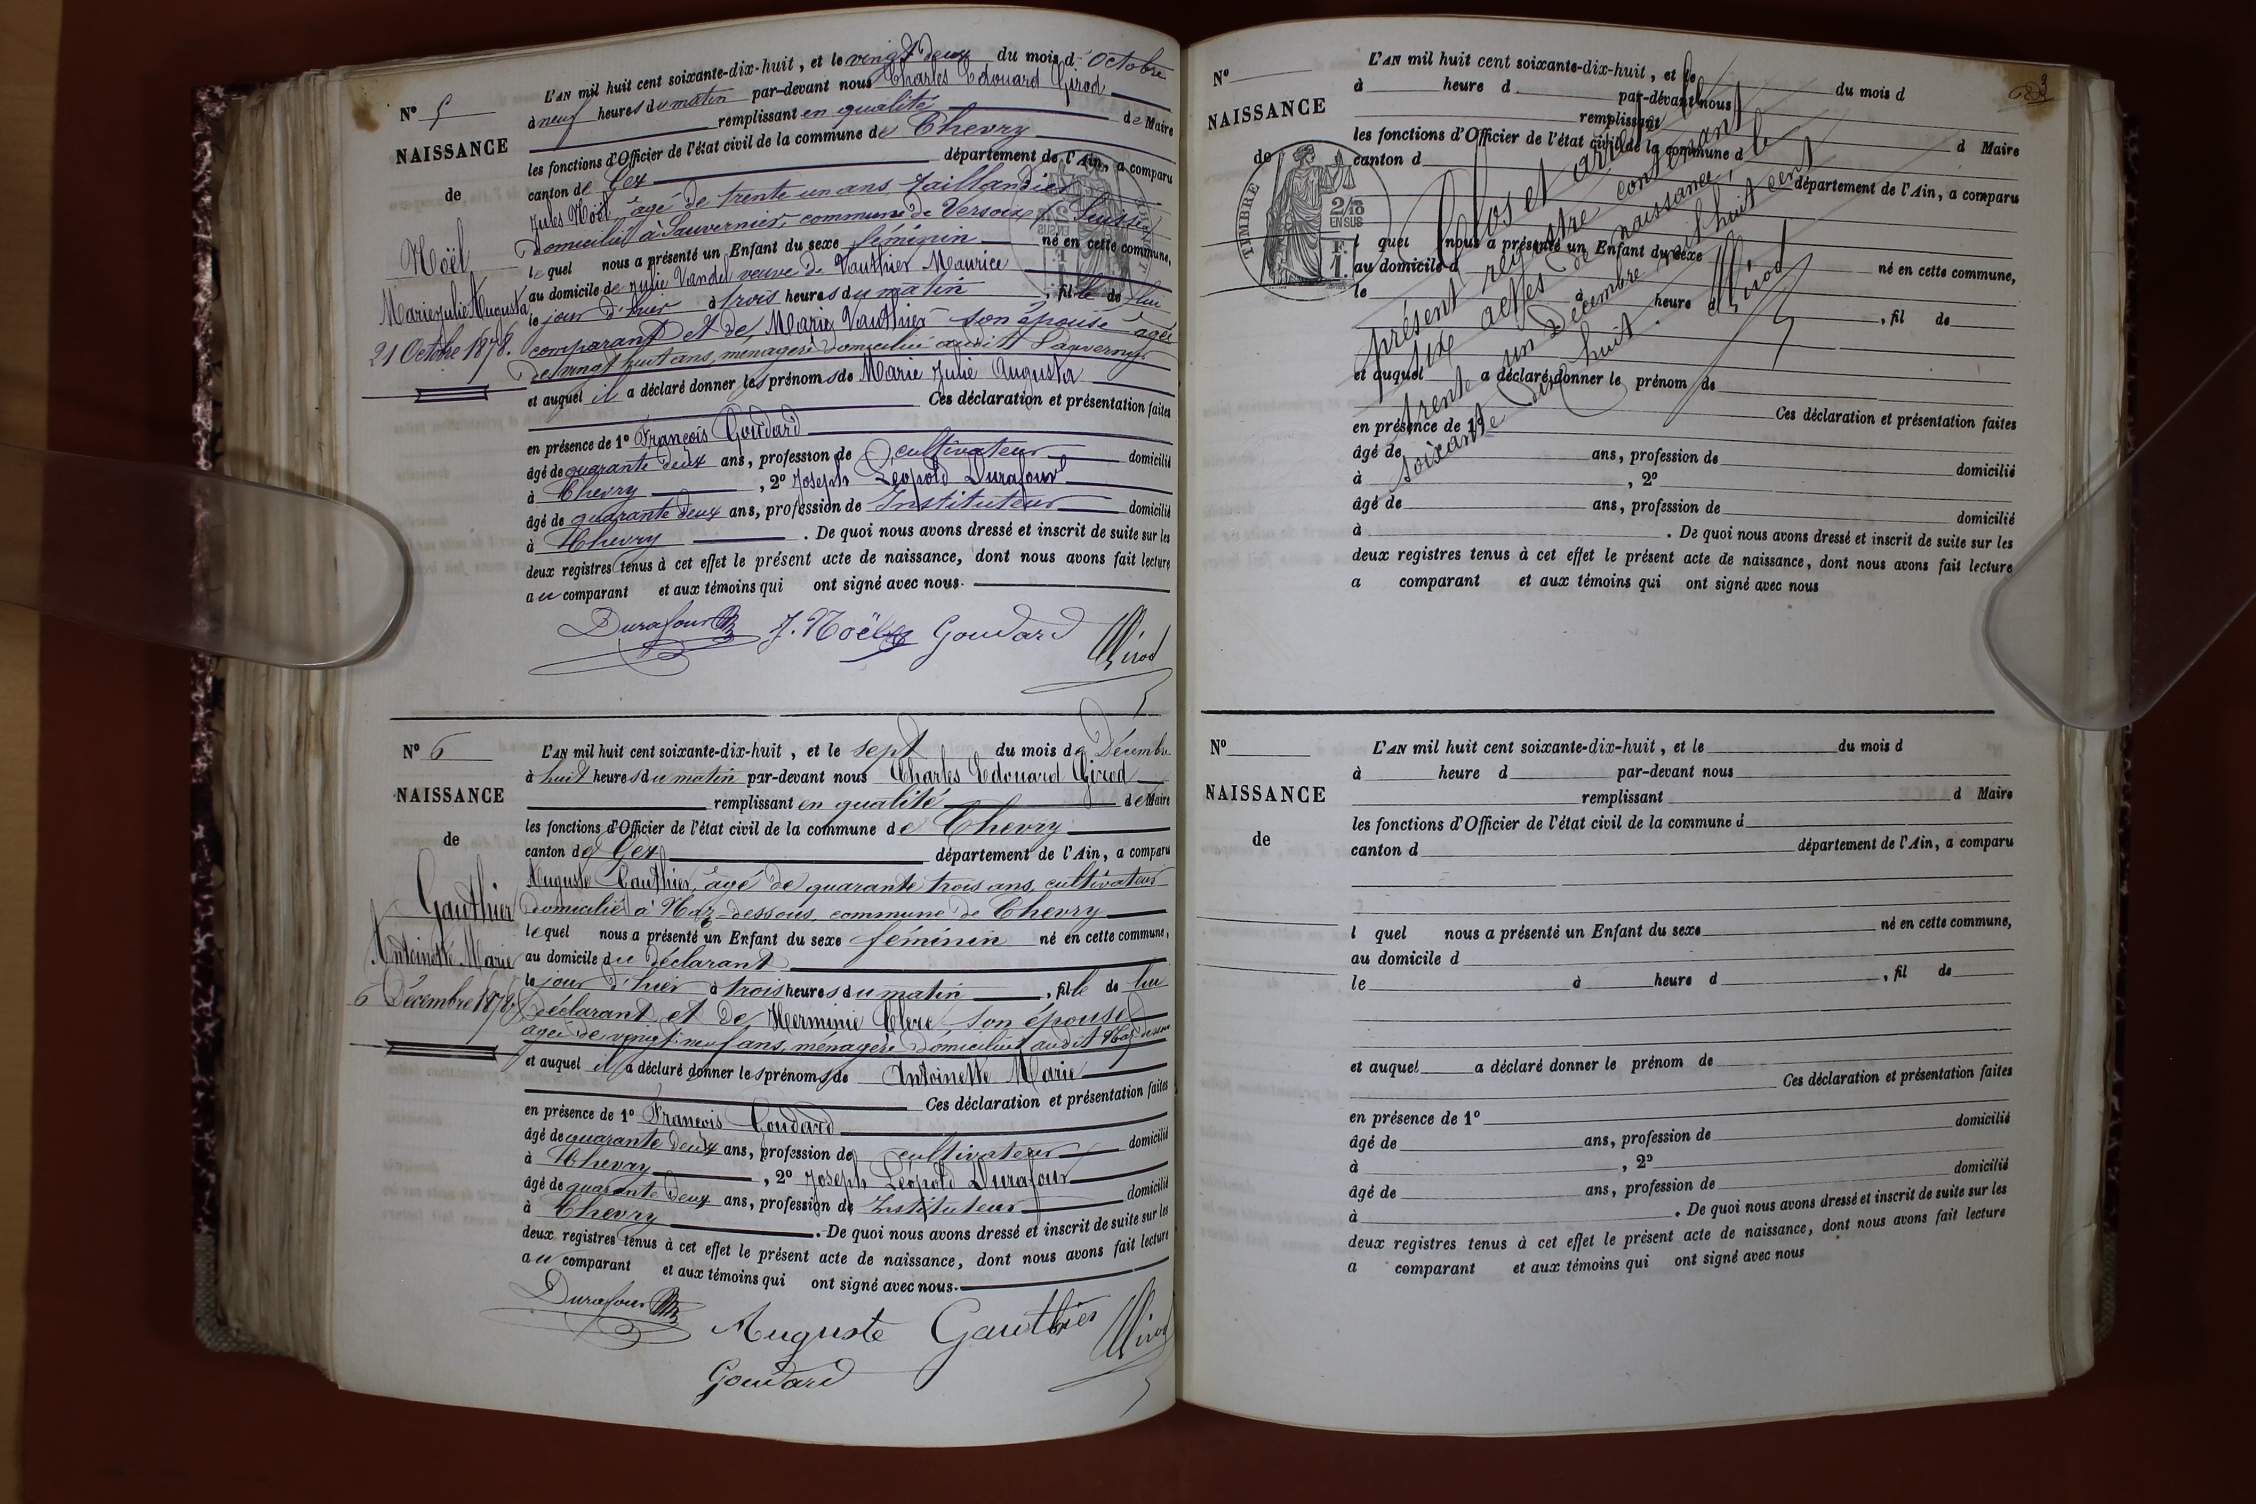 N° 5
NAISSANCE
de
Noël
Marie Julie Augusta
21 Octobre 1878.
L'AN mil huit cent soixante-dix-huit, et le vingt deux du mois d'Octobre
à neuf heures du matin par-devant nous Charles Edouard Girod
remplissant en qualité de Maire
les fonctions d'Officier de l'état civil de la commune de Chevry
canton de Gex département de l'Ain, a comparu
Jules Noël âgé de trente un ans Taillandier
domicilié à Sauvernier, commune de Versoix, Suisse
lequel nous a présenté un Enfant du sexe féminin né en cette commune,
au domicile de Julie Vandel veuve de Vauthier Maurice
le jour d'hier à trois heures du matin, fille de lui
comparant et de Marie Vauthier son épouse âgée
de vingt huit ans, ménagère domiciliée audit Sauverny
et auquel il a déclaré donner les prénoms de Marie Julie Augusta
Ces déclaration et présentation faites
en présence de 1° François Goudard
âgé de quarante deux ans, profession de cultivateur domicilié
à Chevry, 2° Joseph Léopold Durafour
âgé de quarante deux ans, profession de Instituteur domicilié
à Chevry. De quoi nous avons dressé et inscrit de suite sur les
deux registres tenus à cet effet le présent acte de naissance, dont nous avons fait lecture
au comparant et aux témoins qui ont signé avec nous.
Durafour J. Noël Goudard Girod
N° 6
NAISSANCE
de
Gauthier
Antoinette Marie
6 Décembre 1878.
L'AN mil huit cent soixante-dix-huit, et le sept du mois de Décembre
à huit heures du matin par-devant nous Charles Edouard Girod
remplissant en qualité de Maire
les fonctions d'Officier de l'état civil de la commune de Chevry
canton de Gex département de l'Ain, a comparu
Auguste Gauthier, âgé de quarante trois ans, cultivateur
domicilié à Naz-dessous, commune de Chevry
lequel nous a présenté un Enfant du sexe féminin né en cette commune,
au domicile du déclarant
le jour d'hier à trois heures du matin, fille de lui
déclarant et de Herminie Clerc son épouse
âgée de vingt-neuf ans, ménagère domiciliée audit Naz-dessous
et auquel il a déclaré donner les prénoms de Antoinette Marie
Ces déclaration et présentation faites
en présence de 1° François Goudard
âgé de quarante deux ans, profession de cultivateur domicilié
à Chevry, 2° Joseph Léopold Durafour
âgé de quarante deux ans, profession de Instituteur domicilié
à Chevry. De quoi nous avons dressé et inscrit de suite sur les
deux registres tenus à cet effet le présent acte de naissance, dont nous avons fait lecture
au comparant et aux témoins qui ont signé avec nous.
Durafour Auguste Gauthier Girod
Goudard
N°
NAISSANCE
de
TIMBRE
2/10
EN SUS
F.
1.
L'AN mil huit cent soixante-dix-huit, et le du mois d
à heure d par-devant nous
remplissant d Maire
les fonctions d'Officier de l'état civil de la commune d
canton d département de l'Ain, a comparu
l quel nous a présenté un Enfant du sexe né en cette commune,
au domicile d
le à heure d, fil de
et auquel a déclaré donner le prénom de
Ces déclaration et présentation faites
en présence de 1°
âgé de ans, profession de domicilié
à, 2°
âgé de ans, profession de domicilié
à. De quoi nous avons dressé et inscrit de suite sur les
deux registres tenus à cet effet le présent acte de naissance, dont nous avons fait lecture
a comparant et aux témoins qui ont signé avec nous
Clos et arrêté le
présent registre contenant
six actes de naissance, le
trente un Décembre mil huit cent
soixante dix huit.
Girod
N°
NAISSANCE
de
L'AN mil huit cent soixante-dix-huit, et le du mois d
à heure d par-devant nous
remplissant d Maire
les fonctions d'Officier de l'état civil de la commune d
canton d département de l'Ain, a comparu
l quel nous a présenté un Enfant du sexe né en cette commune,
au domicile d
le à heure d, fil de
et auquel a déclaré donner le prénom de
Ces déclaration et présentation faites
en présence de 1°
âgé de ans, profession de domicilié
à, 2°
âgé de ans, profession de domicilié
à. De quoi nous avons dressé et inscrit de suite sur les
deux registres tenus à cet effet le présent acte de naissance, dont nous avons fait lecture
a comparant et aux témoins qui ont signé avec nous